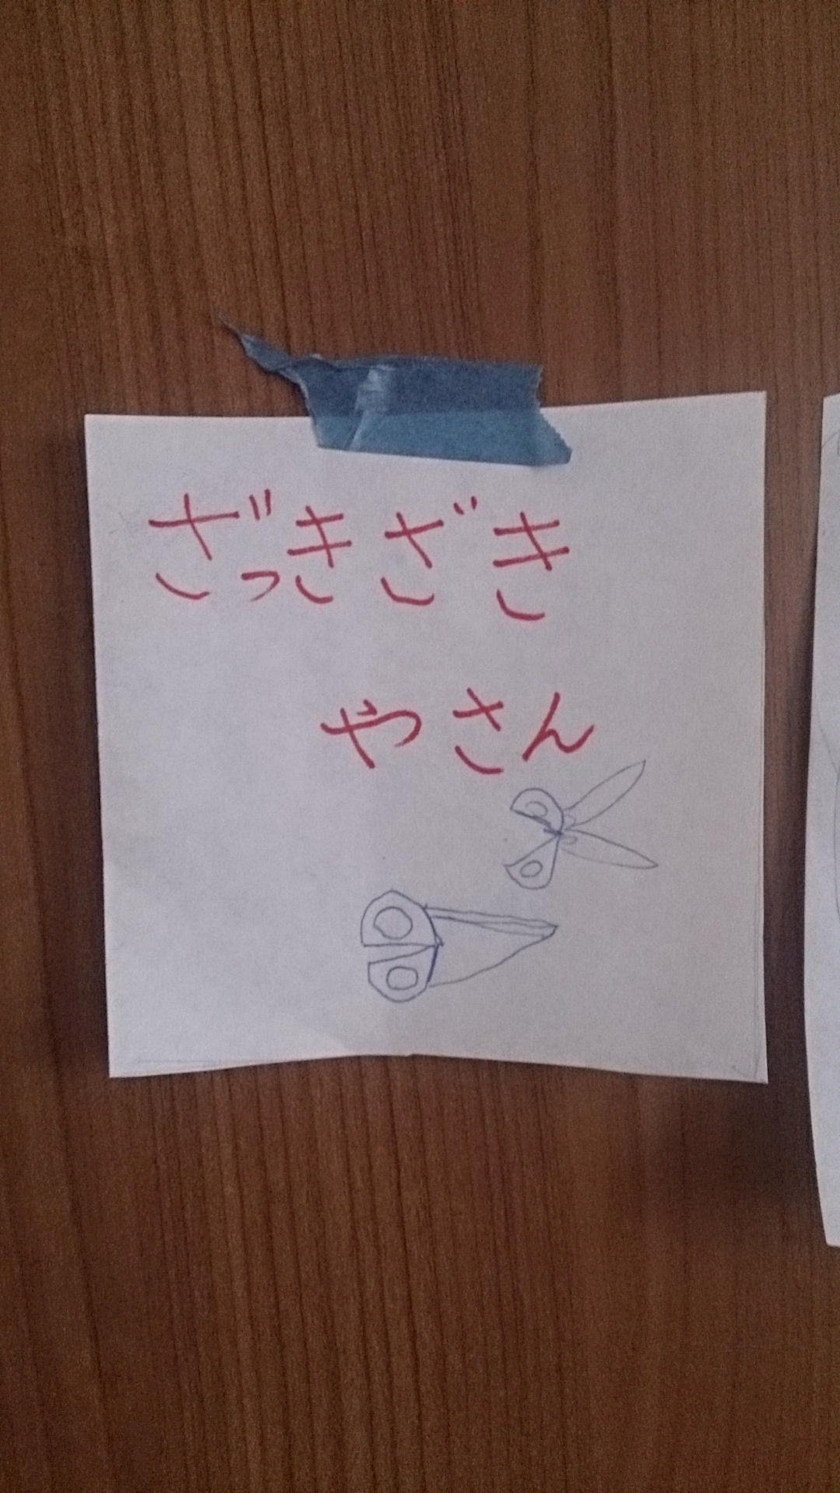 ざっきざき
やさん